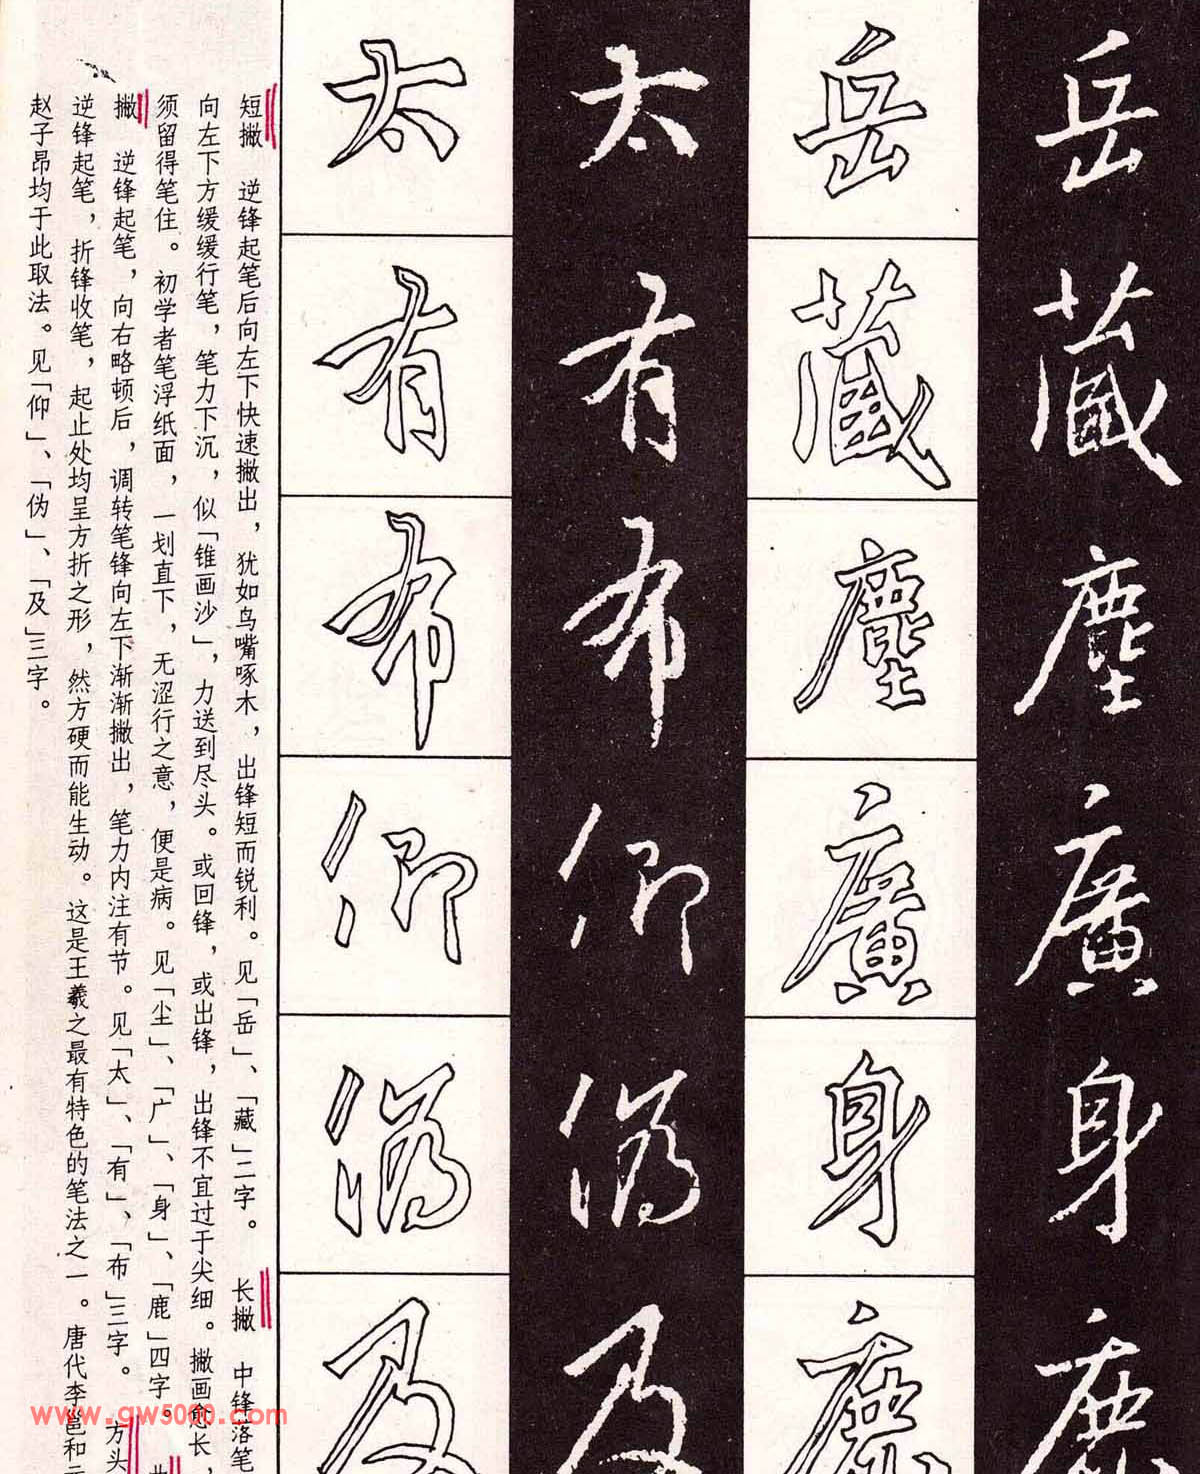 岳
藏
塵
廣
身
鹿
岳
藏
塵
廣
身
鹿
太
有
布
仰
偽
及
太
有
布
仰
偽
及
短撇　逆锋起笔后向左下快速撇出，犹如鸟嘴啄木，出锋短而锐利。见「岳」、「藏」二字。　长撇　中锋落笔
向左下方缓缓行笔，笔力下沉，似「锥画沙」，力送到尽头。或回锋，或出锋，出锋不宜过于尖细。撇画愈长，
须留得笔住。初学者笔浮纸面，一划直下，无涩行之意，便是病。见「尘」、「广」、「身」、「鹿」四字。
撇　逆锋起笔，向右略顿后，调转笔锋向左下渐渐撇出，笔力内注有节。见「太」、「有」、「布」三字。　方头
逆锋起笔，折锋收笔，起止处均呈方折之形，然方硬而能生动。这是王羲之最有特色的笔法之一。唐代李邕和元
赵子昂均于此取法。见「仰」、「伪」、「及」三字。
www.gw5000.com